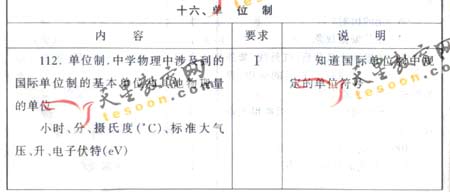 十六、单 位 制
内 容
要求
说 明
112. 单位制.中学物理中涉及到的
国际单位制的基本单位和其他物理量
的单位
小时、分、摄氏度(°C)、标准大气
压、升、电子伏特(eV)
Ⅰ
知道国际单位制中规
定的单位符号
天星教育网
tesoon.com
天星教育网
tesoon.com